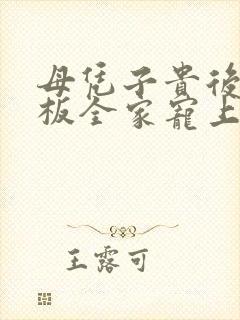 母凭子貴後
板全家寵上
王露可